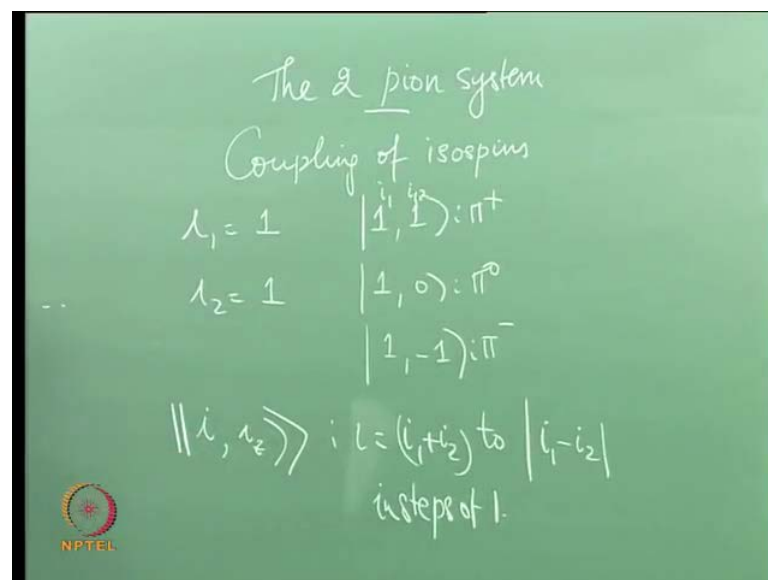 The 2 pion system
Coupling of isospins
i₁ = 1 |1, 1⟩ : π⁺
i₁ i₂
i₂ = 1 |1, 0⟩ : π⁰
|1, -1⟩ : π⁻
||i, i_z⟩⟩ : i = (i₁+i₂) to |i₁-i₂|
in steps of 1.
NPTEL